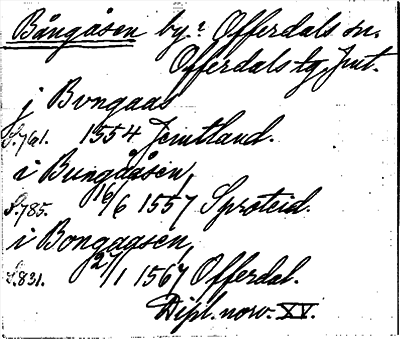 Bångåsen by: Offerdals sn.
Offerdals tg Jmt.
j Bvngaas
S.761. 1554 Jemtland.
i Bungååsen,
S.785. 16/6 1557 Sproteid.
i Bongaasen,
S.831. 27/1 1567 Offerdal.
Dipl. norv. XV.